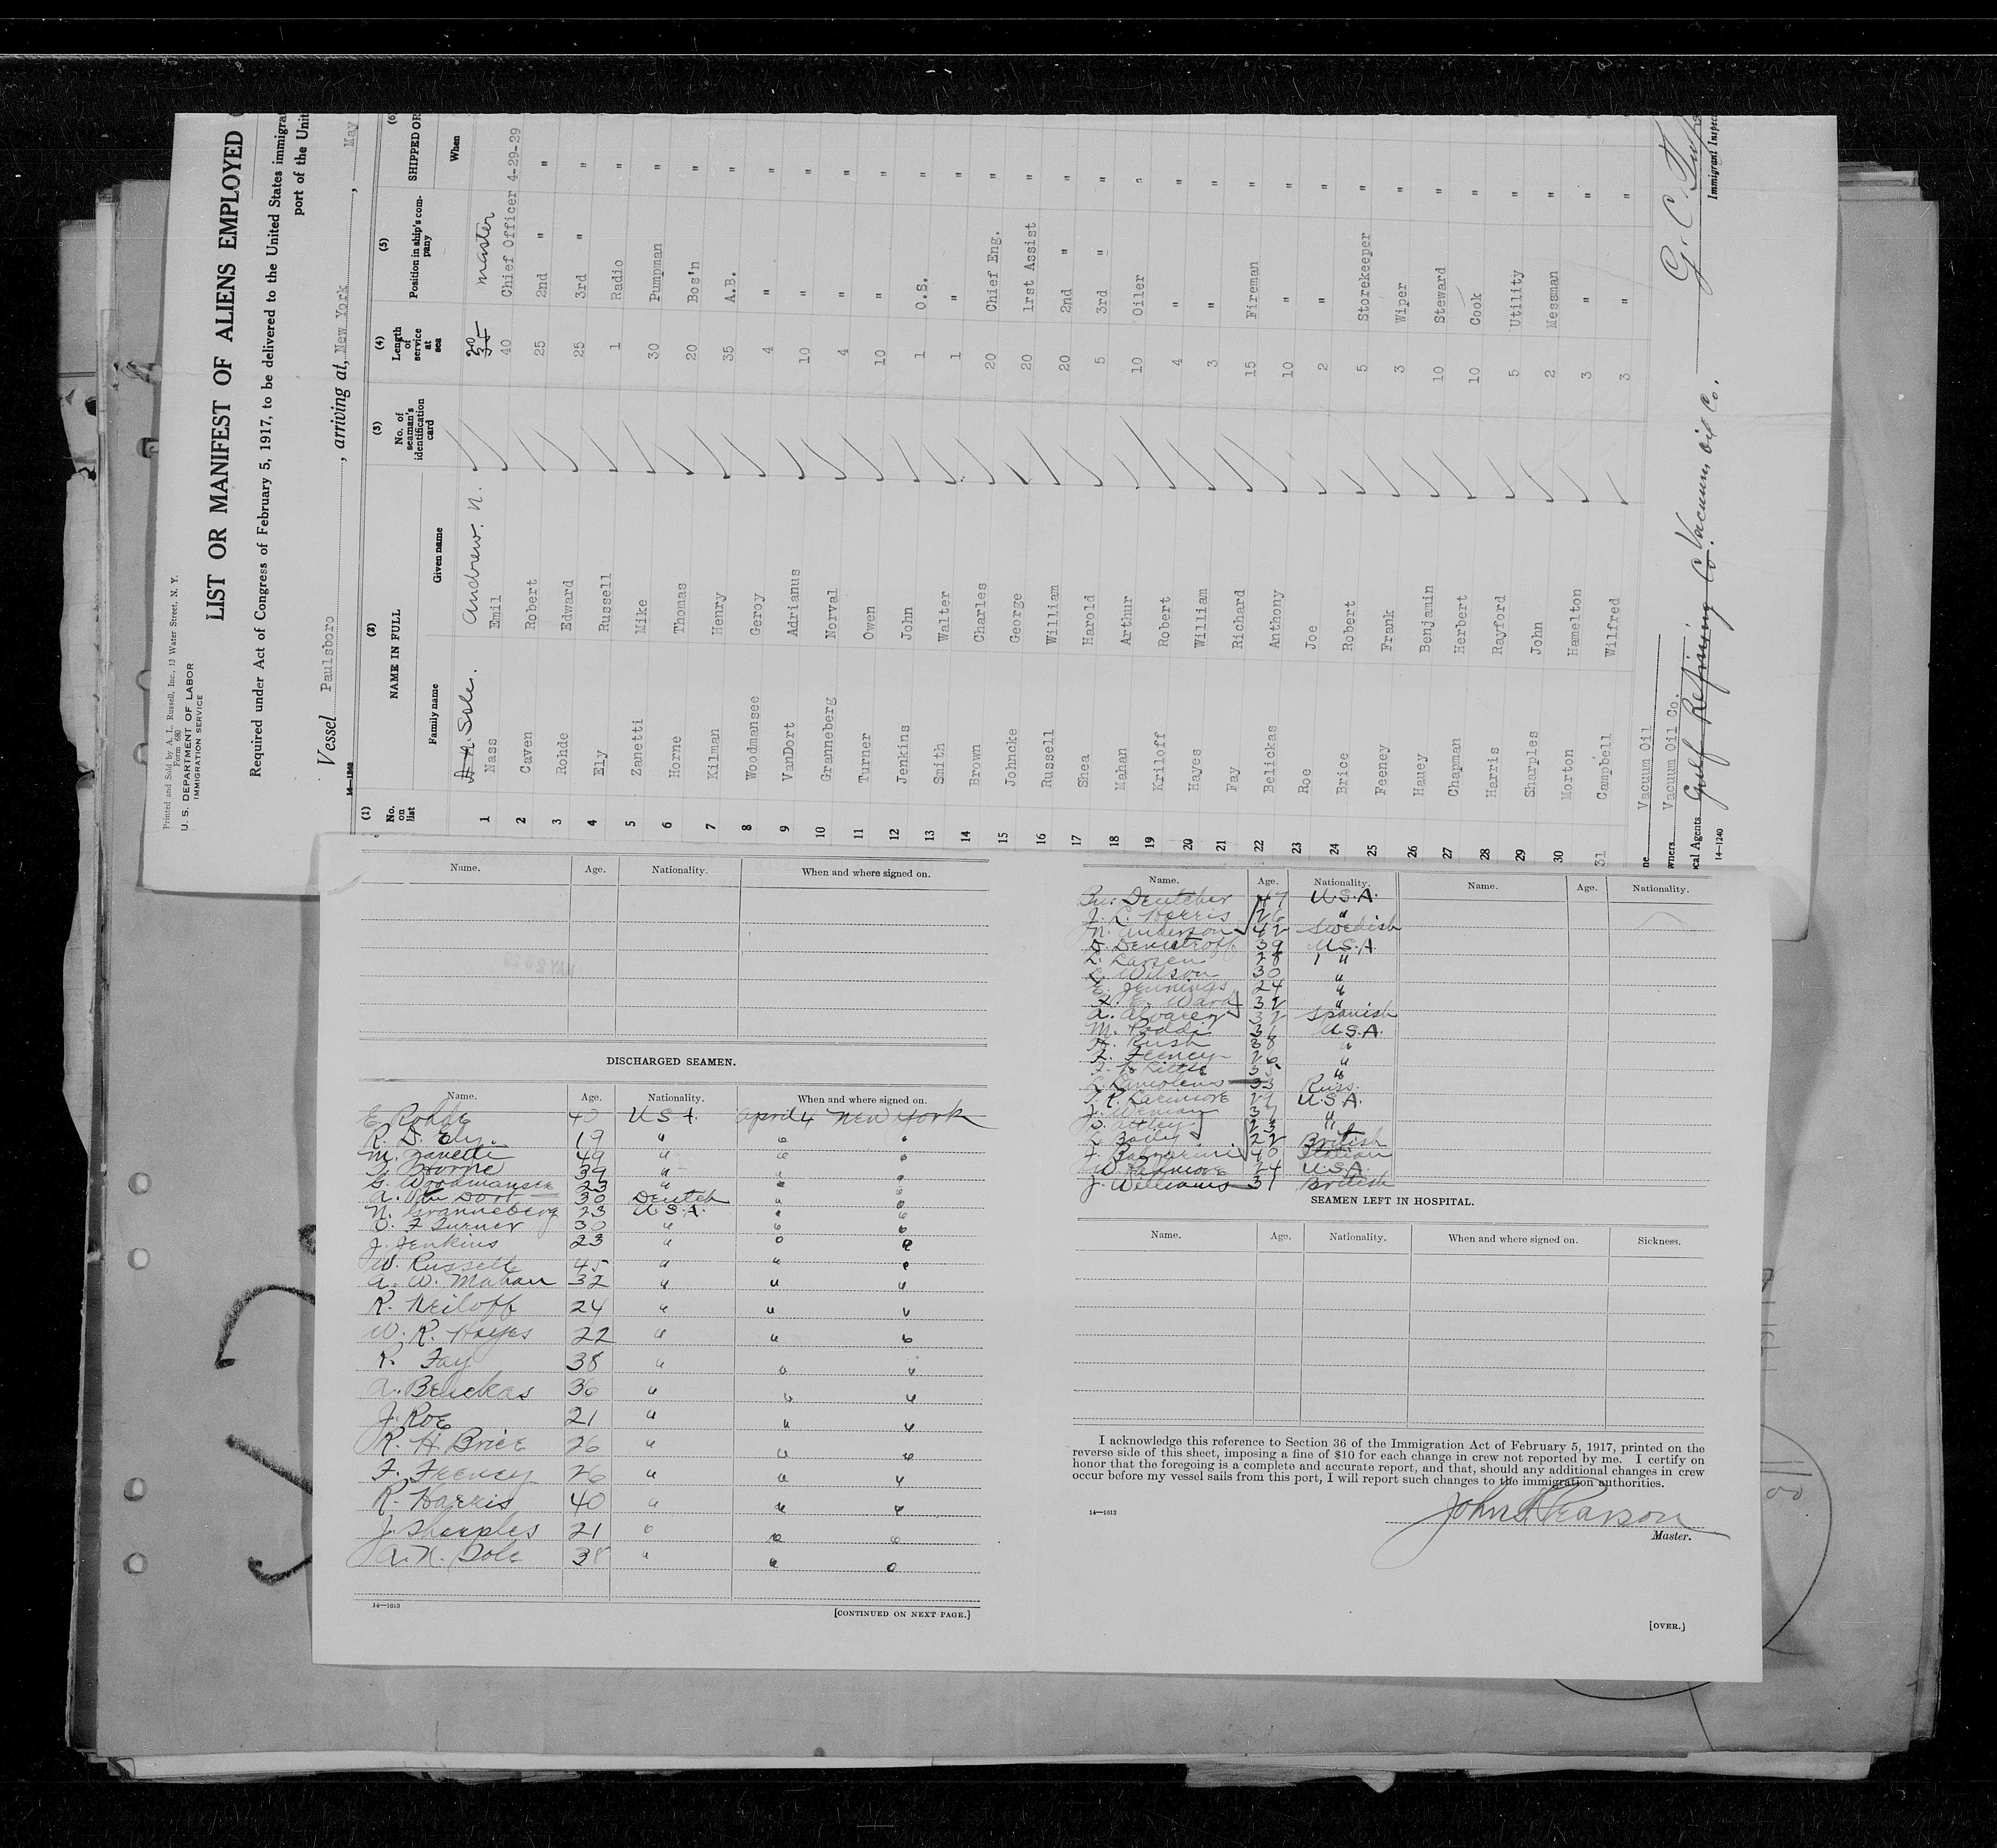 Printed and Sold by A. L. Russell, Inc., 13 Water Street, N. Y.
Form 680
U. S. DEPARTMENT OF LABOR
IMMIGRATION SERVICE
LIST OR MANIFEST OF ALIENS EMPLOYED
Required under Act of Congress of February 5, 1917, to be delivered to the United States immigra
port of the Unit
Vessel Paulsboro, arriving at, New York, May
14—1240
(1) (2) (3) (4) (5) (6)
No. on list NAME IN FULL No. of seaman's identification card Length of service at sea Position in ship's company SHIPPED OR
Family name Given name When
A. N. Sole. Andrew. N. 20 master
1 Nass Emil 40 Chief Officer 4-29-29
2 Caven Robert 25 2nd " "
3 Rohde Edward 25 3rd " "
4 Ely Russell 1 Radio "
5 Zanetti Mike 30 Pumpman "
6 Horne Thomas 20 Bos'n "
7 Kilman Henry 35 A.B. "
8 Woodmansee Geroy 4 " "
9 VanDort Adrianus 10 " "
10 Granneberg Norval 4 " "
11 Turner Owen 10 " "
12 Jenkins John 1 O.S. "
13 Smith Walter 1 " "
14 Brown Charles 20 Chief Eng. "
15 Johncke George 20 1rst Assist "
16 Russell William 20 2nd " "
17 Shea Harold 5 3rd " "
18 Mahan Arthur 10 Oiler "
19 Kriloff Robert 4 " "
20 Hayes William 3 " "
21 Fay Richard 15 Fireman "
22 Belickas Anthony 10 " "
23 Roe Joe 2 " "
24 Brice Robert 5 Storekeeper "
25 Feeney Frank 3 Wiper "
26 Hauey Benjamin 10 Steward "
27 Chapman Herbert 10 Cook "
28 Harris Rayford 5 Utility "
29 Sharples John 2 Messman "
30 Morton Hamelton 3 " "
31 Campbell Wilfred 3 " "
ne Vacuum Oil
wners Vacuum Oil Co.
cal Agents Gulf Refining Co. Vacuum Oil Co.
G. C.
Immigrant Inspec
14—1240
Name. Age. Nationality. When and where signed on.
DISCHARGED SEAMEN.
Name. Age. Nationality. When and where signed on.
E Rohde 40 U S A April 4 New York
R. D. Ely. 19 " " "
M. Zanetti 49 " " "
T. Horne 39 " " "
G. Woodmansee 23 " " "
A. Van Dort 30 Deutch " "
N. Granneberg 23 U.S.A. " "
O. F Turner 30 " " "
J. Jenkins 23 " " "
W. Russell 45 " " "
A. W. Mahan 32 " " "
R. Kriloff 24 " " "
W. R. Hayes 22 " " "
R. Fay 38 " " "
A. Belickas 36 " " "
J. Roe 21 " " "
R. H. Brice 26 " " "
F. Feeney 26 " " "
R. Harris 40 " " "
J. Sharples 21 " " "
A. N. Sole 38 " " "
14—1613
[CONTINUED ON NEXT PAGE.]
Name. Age. Nationality. Name. Age. Nationality.
Deutcher 47 U.S.A.
J. L. Harris 26 "
N. Anderson 42 Swedish
Demetroff 39 U.S.A.
L. Larsen 28 "
L. Wilson 30 "
E. Jennings 24 "
E. Ward 32 "
A. Alvarez 32 Spanish
M. 36 U.S.A.
Rush 38 "
F. Feeney 26 "
"
33 Russ.
R. Laremore 29 U.S.A.
J. 37 "
"
L. Baily 22 British
J. 40 Italian
W. 24 U.S.A.
J. Williams 31 British
SEAMEN LEFT IN HOSPITAL.
Name. Age. Nationality. When and where signed on. Sickness.
I acknowledge this reference to Section 36 of the Immigration Act of February 5, 1917, printed on the
reverse side of this sheet, imposing a fine of $10 for each change in crew not reported by me. I certify on
honor that the foregoing is a complete and accurate report, and that, should any additional changes in crew
occur before my vessel sails from this port, I will report such changes to the immigration authorities.
14—1613
John A Pearson
Master.
[OVER.]